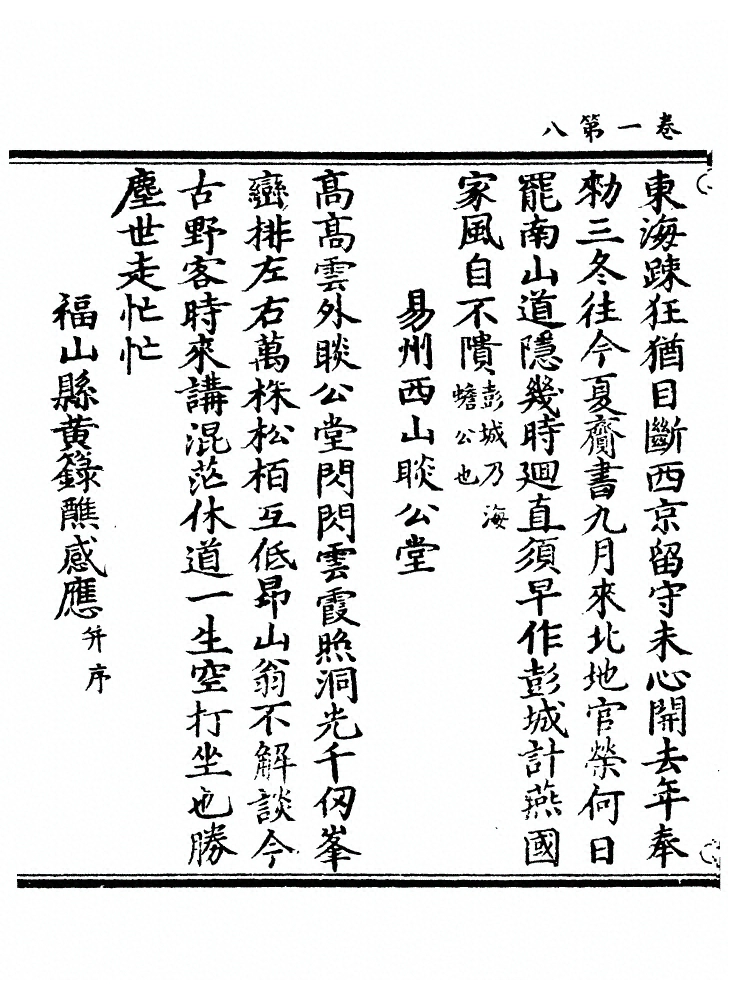 卷一第八
東海踈狂猶目斷西京留守未心開去年奉
勑三冬往今夏齎書九月來北地官榮何日
罷南山道隱幾時廻直須早作彭城計燕國
家風自不隤彭城乃海
蟾公也
易州西山聕公堂
髙髙雲外聕公堂閃閃雲霞照洞光千仭峯
巒排左右萬株松栢互低昻山翁不解談今
古野客時來講混茫休道一生空打坐也勝
塵世走忙忙
福山縣黄籙醮感應并序